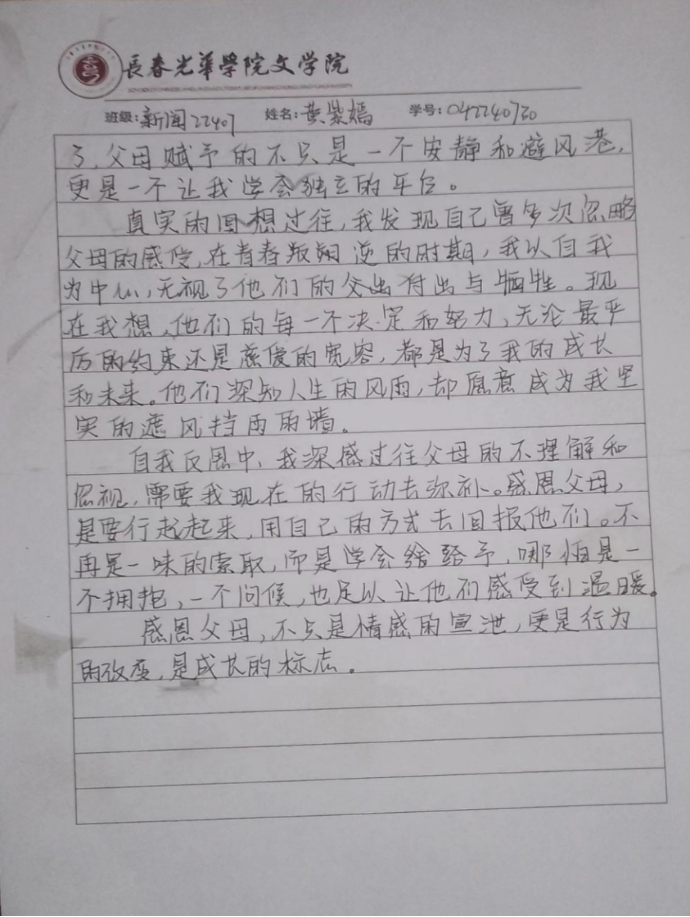 長春光華學院文學院
班级:新闻22407 姓名:黄紫嫣 学号:042240720
了,父母赋予的不只是一个安静和避风港,
更是一个让我学会独立的平台。
真实的回想过往,我发现自己曾多次忽略
父母的感受,在青春叛逆的时期,我以自我
为中心,无视了他们的付出与牺牲。现
在我想,他们的每一个决定和努力,无论最严
厉的约束还是慈爱的宽容,都是为了我的成长
和未来。他们深知人生的风雨,却愿意成为我坚
实的遮风挡雨雨墙。
自我反思中,我深感过往父母的不理解和
忽视,需要我现在的行动去弥补。感恩父母,
是要行起来,用自己的方式去回报他们。不
再是一味的索取,而是学会给予,哪怕是一
个拥抱,一个问候,也足以让他们感受到温暖。
感恩父母,不只是情感的宣泄,更是行为
的改变,是成长的标志。